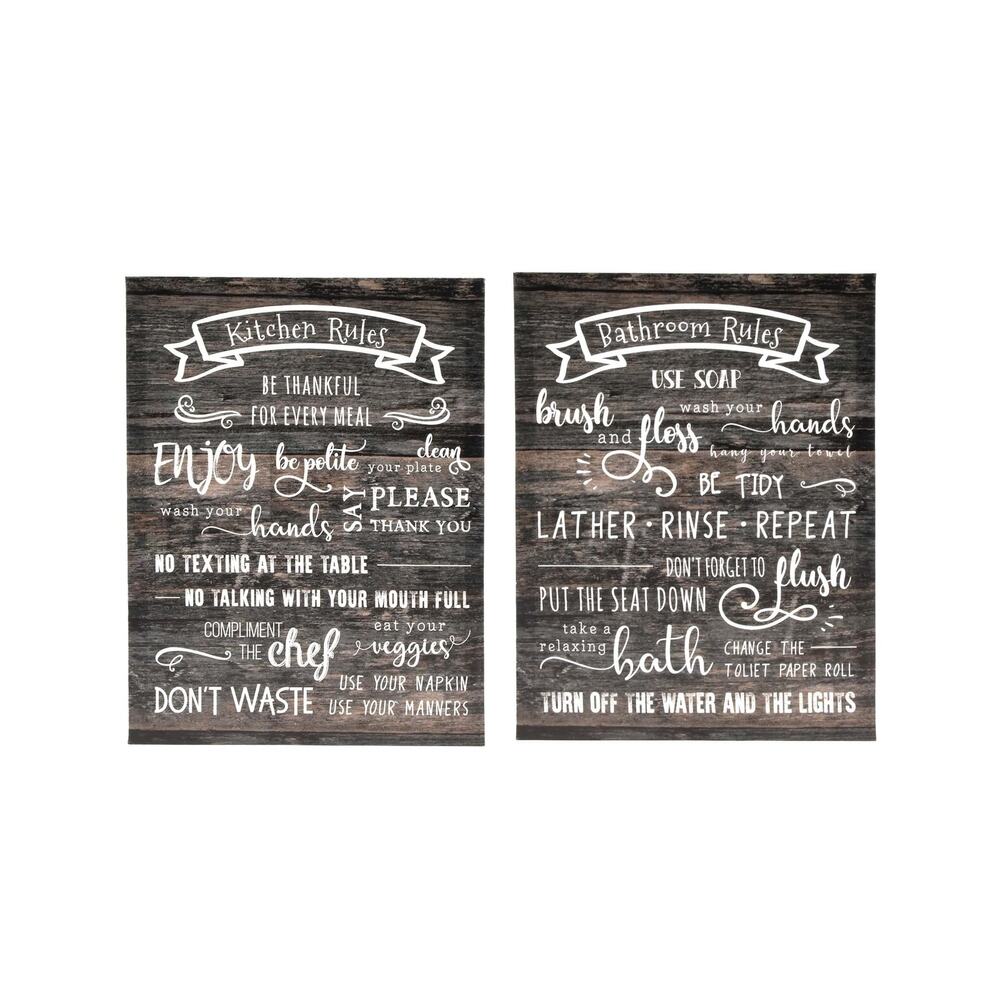 Kitchen Rules
BE THANKFUL
FOR EVERY MEAL
ENJOY
be polite
clean
your plate
wash your
hands
SAY
PLEASE
THANK YOU
NO TEXTING AT THE TABLE
NO TALKING WITH YOUR MOUTH FULL
COMPLIMENT
THE chef
eat your
veggies
DON'T WASTE
USE YOUR NAPKIN
USE YOUR MANNERS
Bathroom Rules
USE SOAP
brush
and floss
wash your
hands
hang your towel
BE TIDY
LATHER · RINSE · REPEAT
DON'T FORGET TO
flush
PUT THE SEAT DOWN
take a
relaxing
bath
CHANGE THE
TOLIET PAPER ROLL
TURN OFF THE WATER AND THE LIGHTS